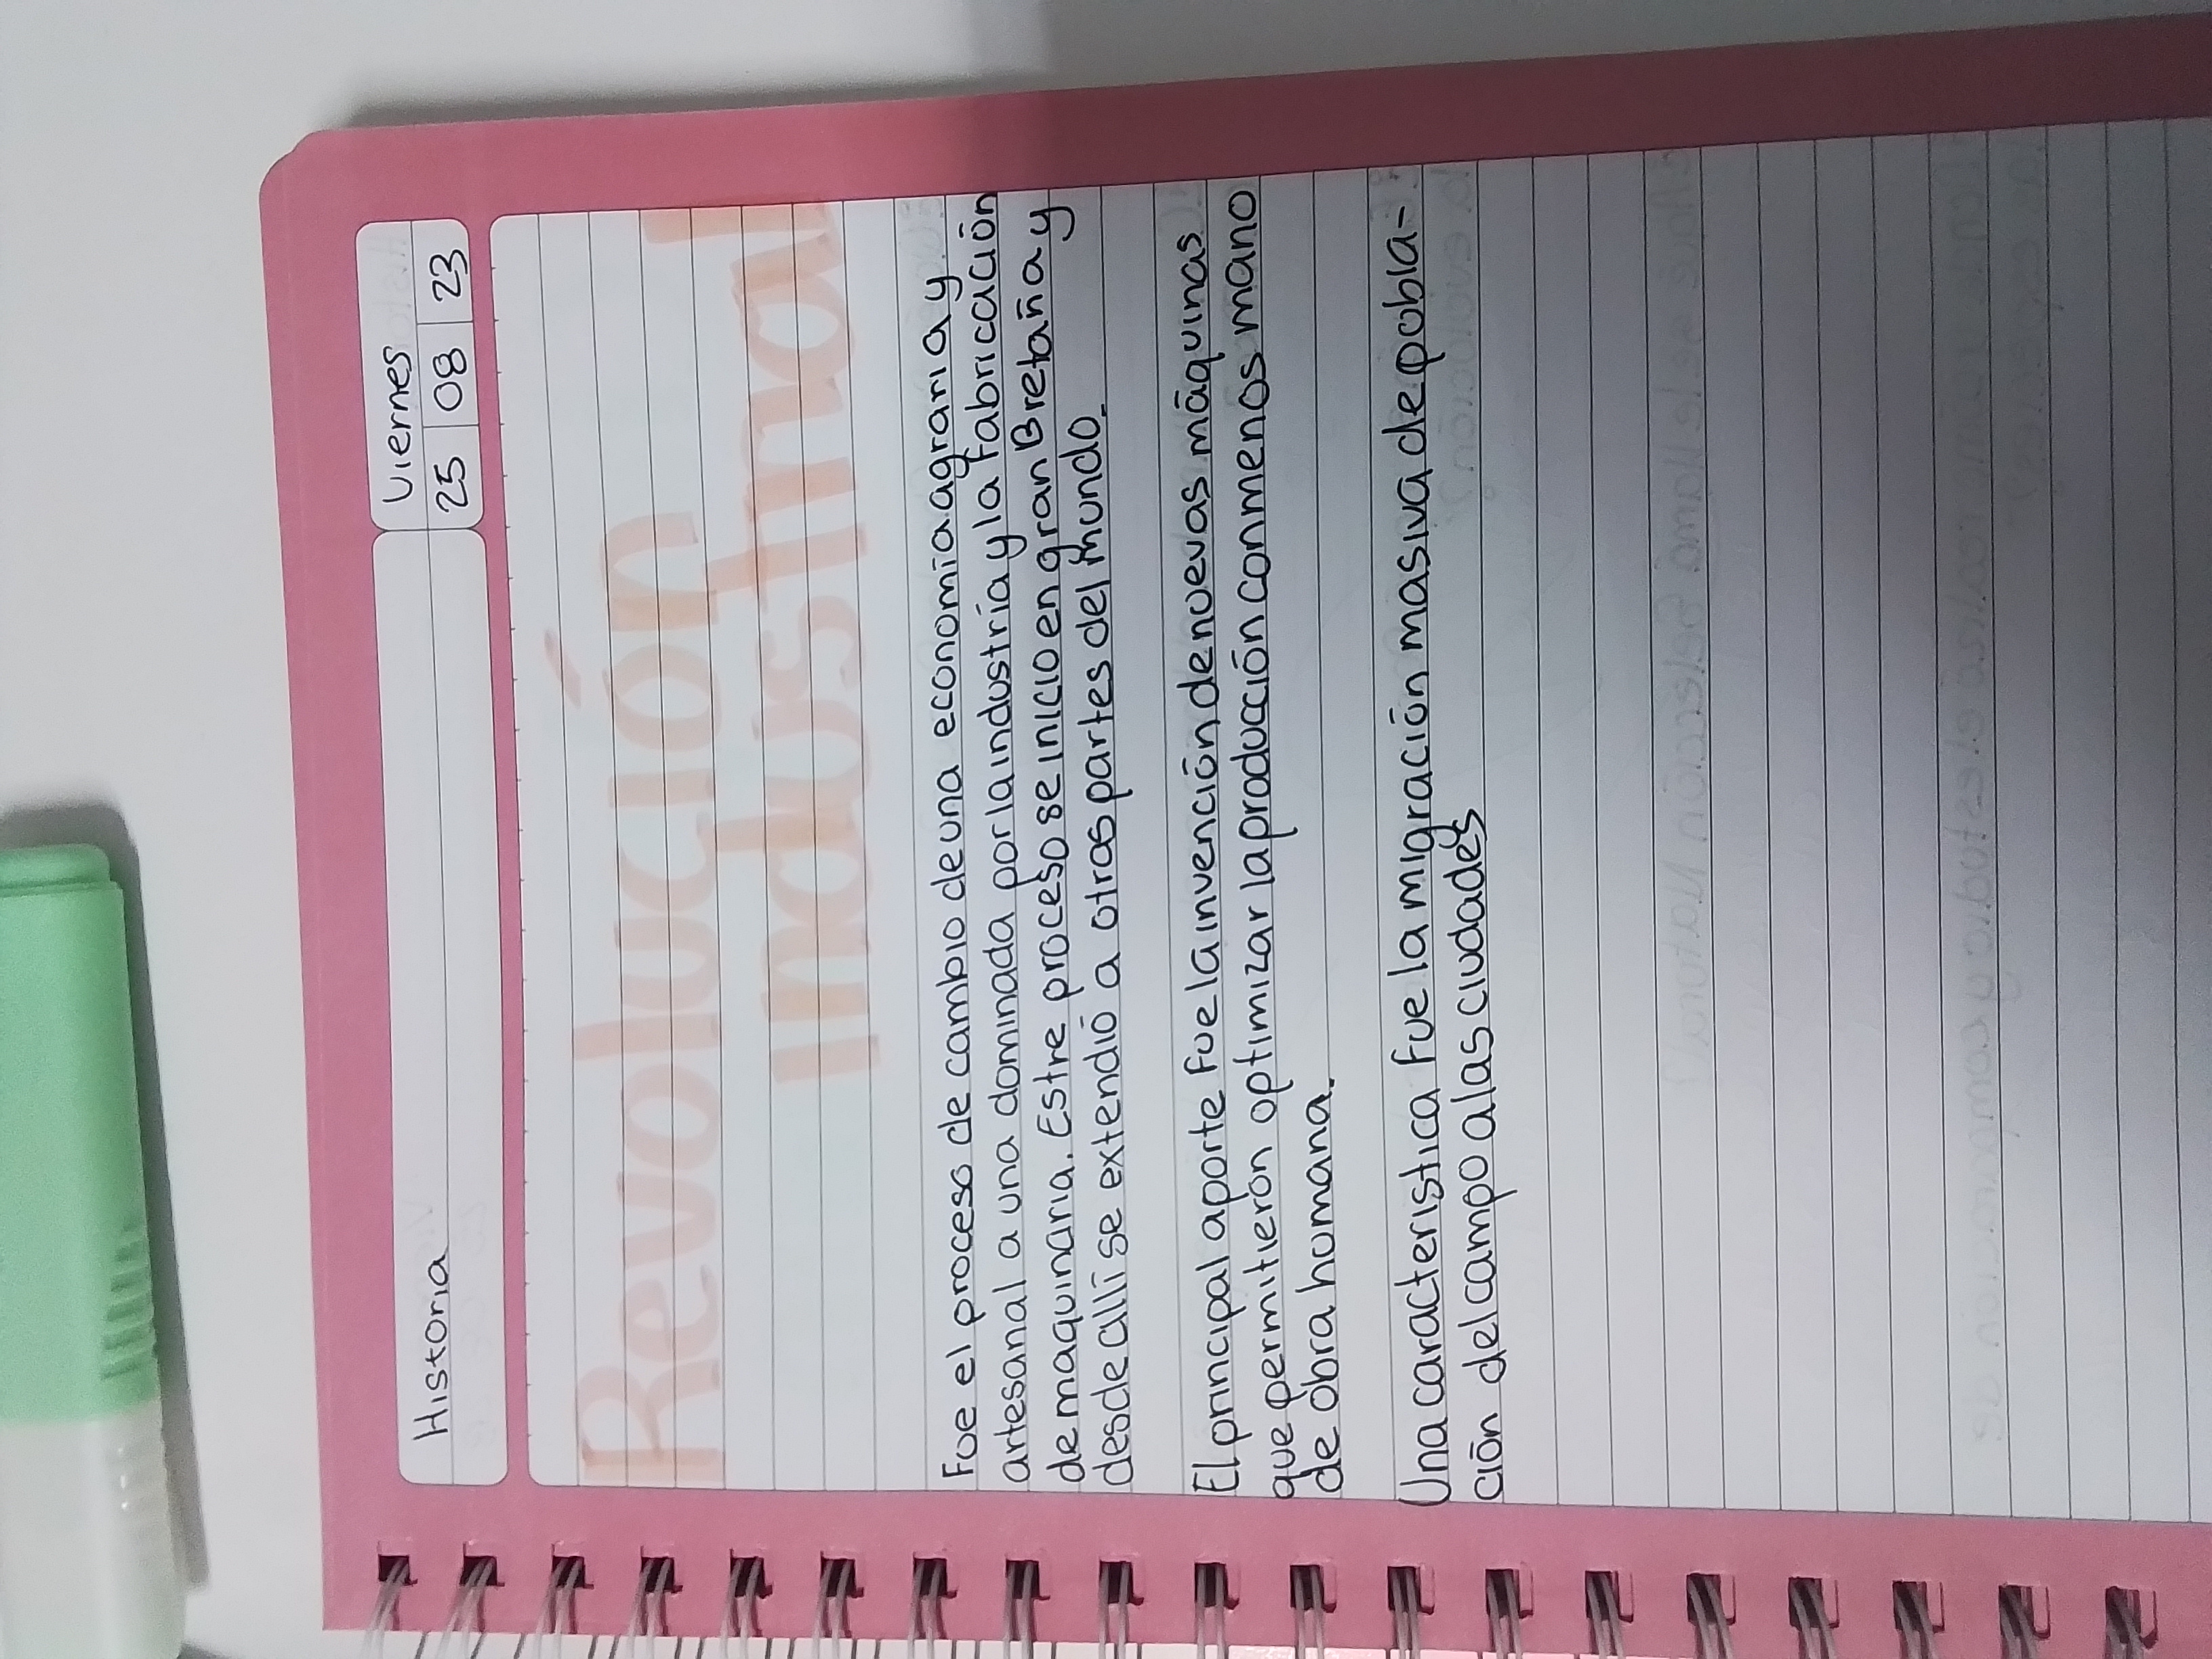 Historia
Viernes
25 08 23
Revolución
industrial
Fue el proceso de cambio de una economía agraria y
artesanal a una dominada por la industria y la fabricación
de maquinaria. Estre proceso se inicio en gran Bretaña y
desde allí se extendió a otras partes del mundo.
El principal aporte fue la invención de nuevas máquinas
que permitierón optimizar la producción con menos mano
de obra humana.
Una caracteristica fue la migración masiva de pobla-
ción del campo a las ciudades